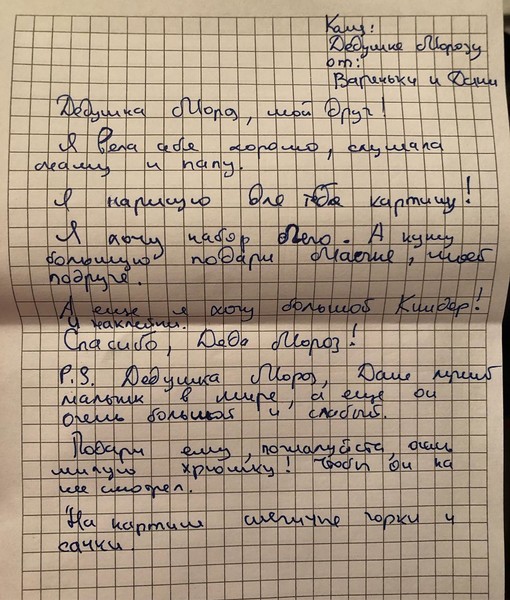 Кому:
Дедушке Морозу
от:
Вареньки и Дани
Дедушка Мороз, мой друг!
Я вела себя хорошо, слушала
маму и папу.
Я нарисую для тебя картину!
Я хочу набор Лего. А куклу
большую подари Маше, моей
подруге.
А еще я хочу большой Киндер!
и наклейки.
Спасибо, Деда Мороз!
P.S. Дедушка Мороз, Даня лучший
малыш в мире, а еще он
очень большой и слабый.
Подари ему, пожалуйста, очень
милую хрюшку! Чтобы он на
нее смотрел.
На картине снежные горки и
санки.